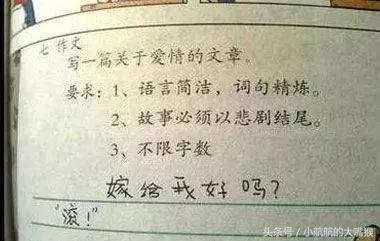 七 作文
写一篇关于爱情的文章。
要求：1、语言简洁，词句精炼。
2、故事必须以悲剧结尾。
3、不限字数
嫁给我好吗？
“滚！”
头条号 / 小航航的大嘴猴